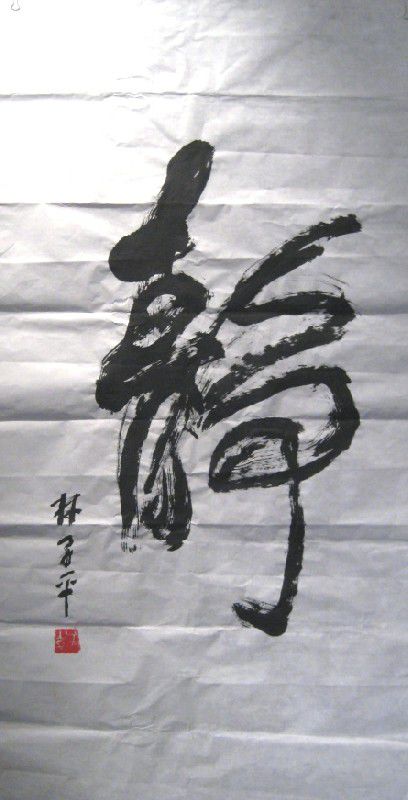 靜
林子平